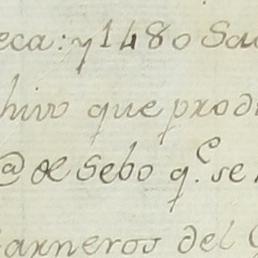 eca: y 1480 Sa
hivo que prod
@ de Sebo q.e se
arneros del